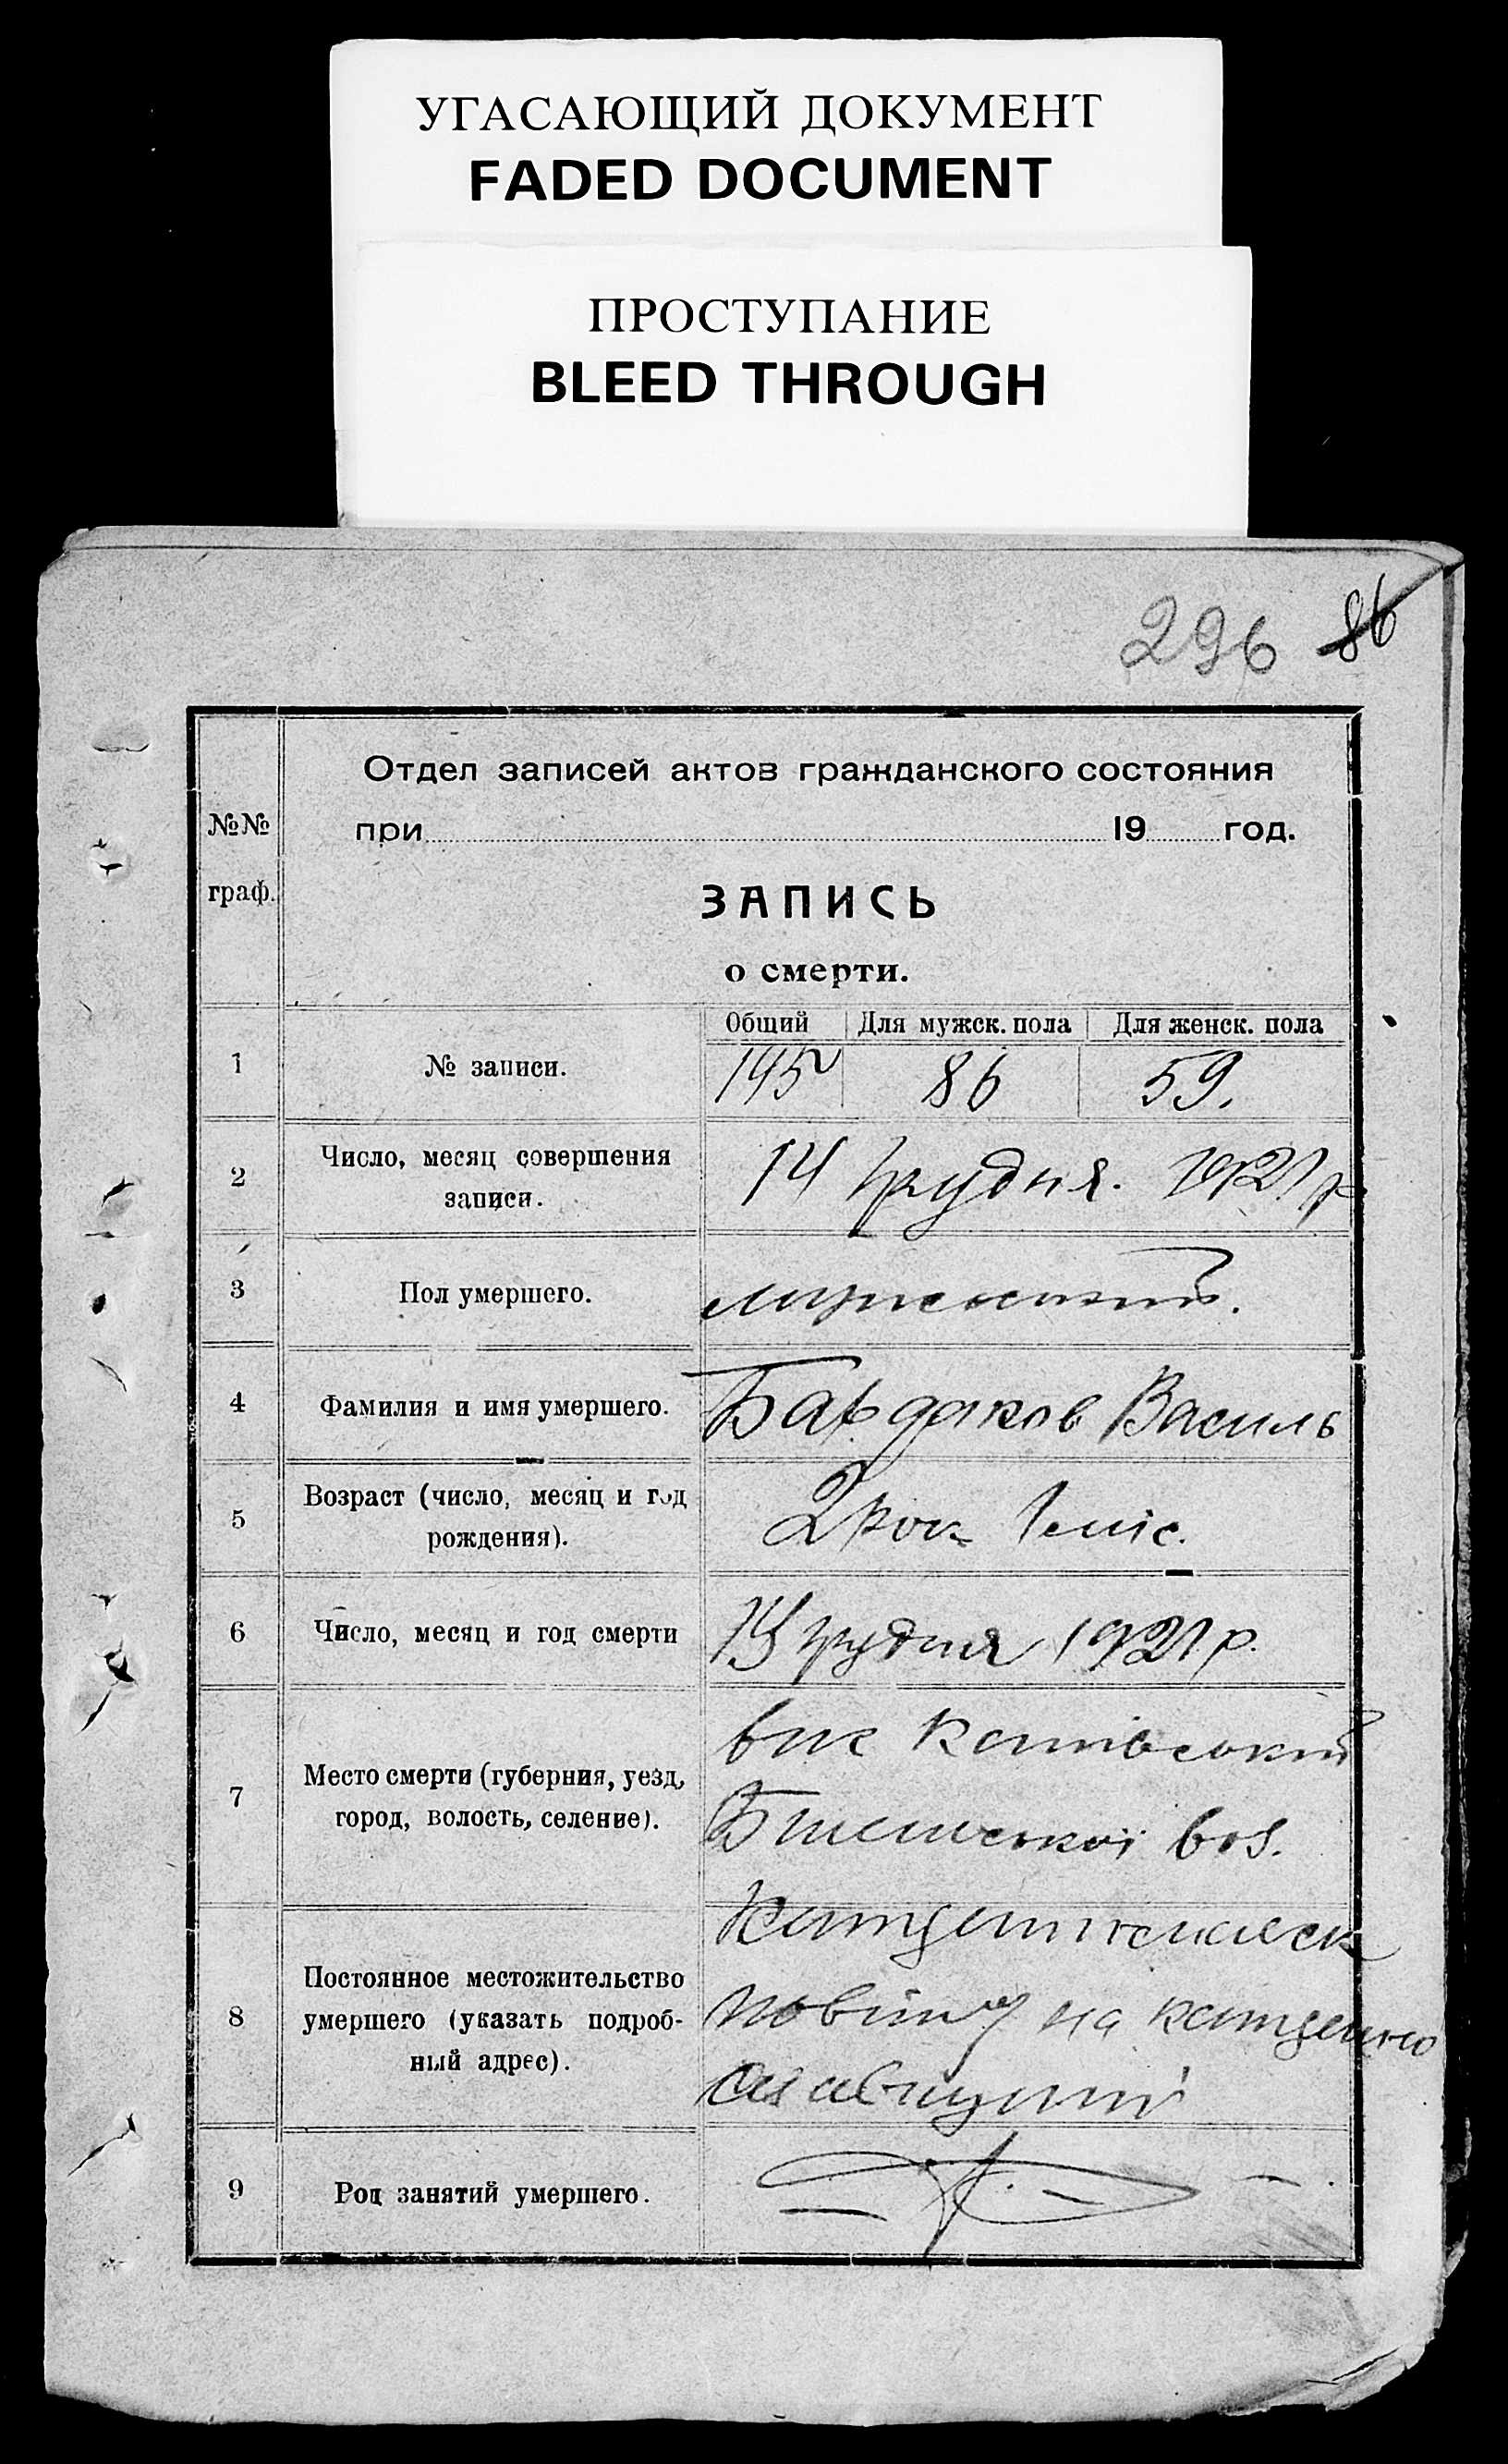 УГАСАЮЩИЙ ДОКУМЕНТ
FADED DOCUMENT
ПРОСТУПАНИЕ
BLEED THROUGH
296 86
Отдел записей актов гражданского состояния
№№ граф.
при 19 год.
ЗАПИСЬ
о смерти.
Общий Для мужск. пола Для женск. пола
1 № записи. 145 86 59.
2 Число, месяц совершения
записи.
14 грудня. 1921 р
3 Пол умершего.
4 Фамилия и имя умершего. Бардаков Василь
5 Возраст (число, месяц и год
рождения).
2 рок 1 міс.
6 Число, месяц и год смерти
грудня 1921 р.
7 Место смерти (губерния, уезд,
город, волость, селение).
вос.
8 Постоянное местожительство
умершего (указать подроб-
ный адрес).
повіту на
9 Род занятий умершего.